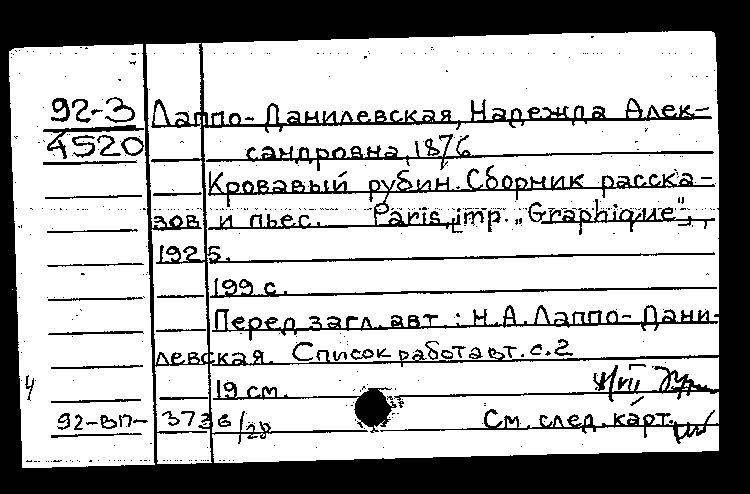 92-3 Лаппо-Данилевская, Надежда Алек-
4520 сандровна, 1876
Кровавый рубин. Сборник расска-
зов и пьес. Paris, imp. „Graphique",
1925.
199 с.
Перед загл. авт.: Н.А. Лаппо-Дани-
левская. Список работ авт. с. 2
19 см.
92-ВП- 3736/28 См. след. карт.